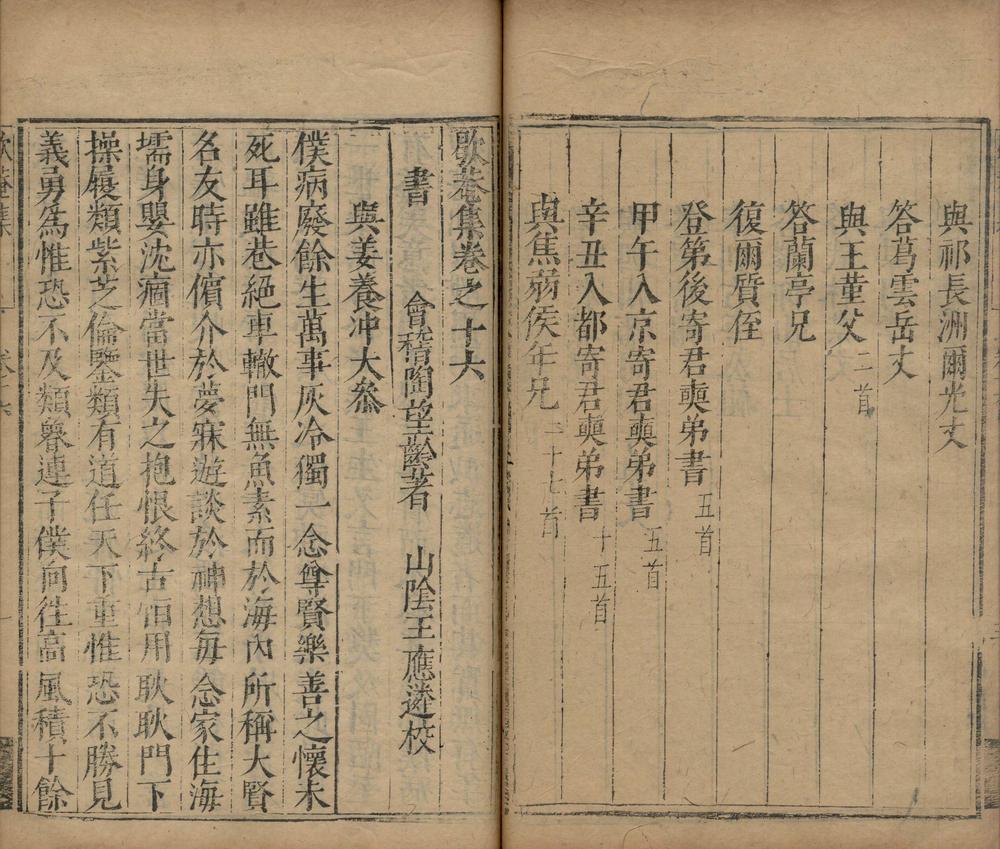 與祁長洲爾光丈
答葛雲岳丈
與王堇父二首
答蘭亭兄
復爾質侄
登第後寄君奭弟書五首
甲午入京寄君奭弟書五首
辛丑入都寄君奭弟書十五首
與焦弱侯年兄二十七首
歇菴集卷之十六
書　會稽陶望齡著　山陰王應遴校
與姜養冲大叅
僕病廢餘生萬事灰冷獨一念尊賢樂善之懷未
死耳雖巷絕車轍門無魚素而於海內所稱大賢
名友時亦儐介於夢寐遊談於神想每念家住海
壖身嬰沈痼當世失之抱恨終古怊用耿耿門下
操履類紫芝倫鑒類有道任天下重惟恐不勝見
義勇為惟恐不及類魯連子僕向往高風積十餘